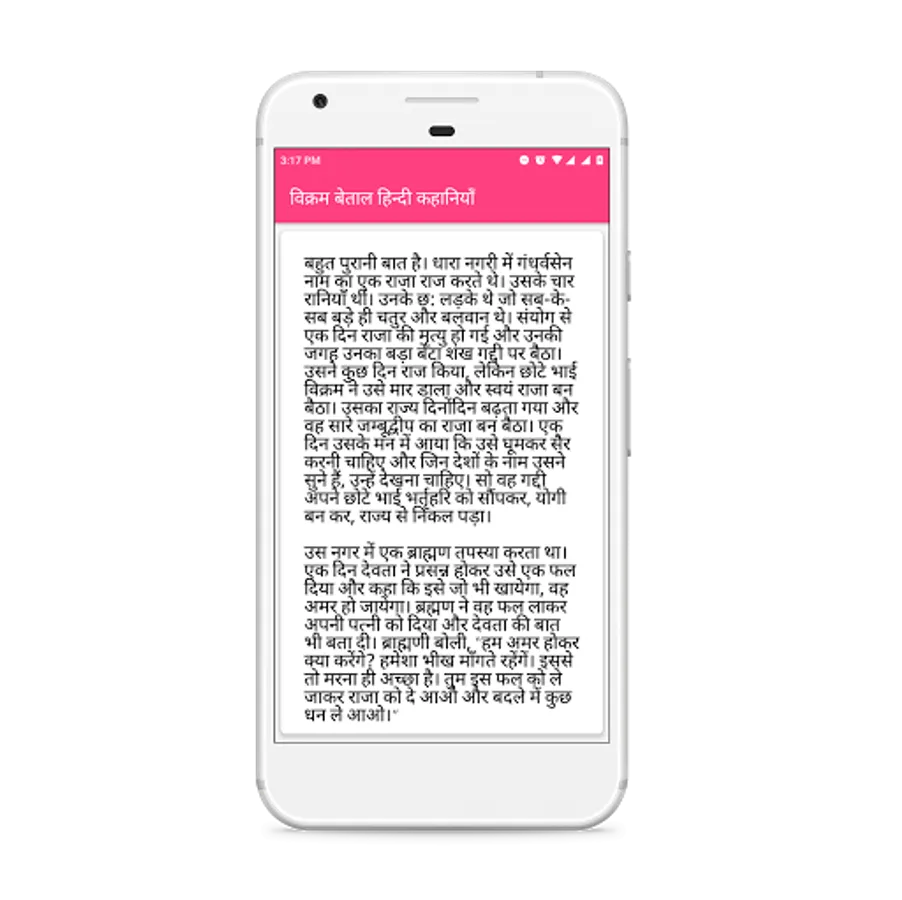 3:17 PM
विक्रम बेताल हिन्दी कहानियाँ
बहुत पुरानी बात है। धारा नगरी में गंधर्वसेन
नाम का एक राजा राज करते थे। उसके चार
रानियाँ थीं। उनके छ: लड़के थे जो सब-के-
सब बड़े ही चतुर और बलवान थे। संयोग से
एक दिन राजा की मृत्यु हो गई और उनकी
जगह उनका बड़ा बेटा शंख गद्दी पर बैठा।
उसने कुछ दिन राज किया, लेकिन छोटे भाई
विक्रम ने उसे मार डाला और स्वयं राजा बन
बैठा। उसका राज्य दिनोंदिन बढ़ता गया और
वह सारे जम्बूद्वीप का राजा बन बैठा। एक
दिन उसके मन में आया कि उसे घूमकर सैर
करनी चाहिए और जिन देशों के नाम उसने
सुने हैं, उन्हें देखना चाहिए। सो वह गद्दी
अपने छोटे भाई भर्तृहरि को सौंपकर, योगी
बन कर, राज्य से निकल पड़ा।
उस नगर में एक ब्राह्मण तपस्या करता था।
एक दिन देवता ने प्रसन्न होकर उसे एक फल
दिया और कहा कि इसे जो भी खायेगा, वह
अमर हो जायेगा। ब्रह्मण ने वह फल लाकर
अपनी पत्नी को दिया और देवता की बात
भी बता दी। ब्राह्मणी बोली, "हम अमर होकर
क्या करेंगे? हमेशा भीख माँगते रहेंगें। इससे
तो मरना ही अच्छा है। तुम इस फल को ले
जाकर राजा को दे आओ और बदले में कुछ
धन ले आओ।"